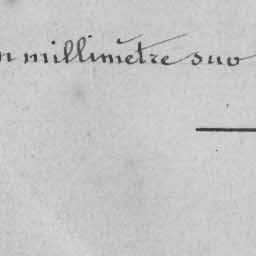 n millimètre suo